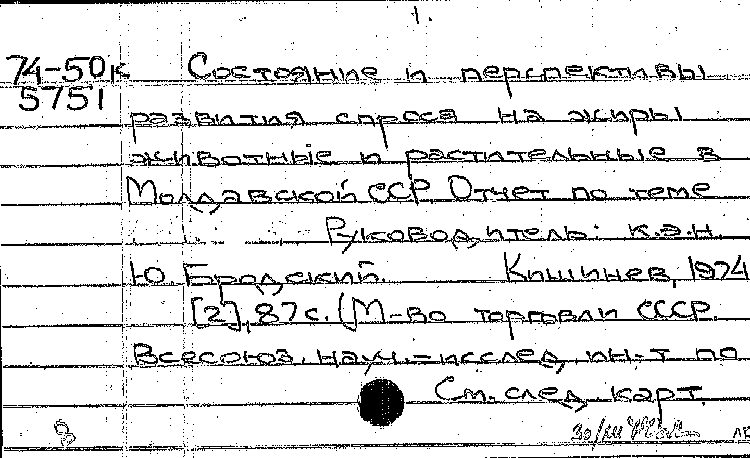 1.
74-50к Состояние и перспективы
5751
развития спроса на жиры
животные и растительные в
Молдавской ССР. Отчет по теме
Руководитель: к.э.н.
Ю. Бродский. Кишинев, 1974
[2], 87 с. (М-во торговли СССР.
Всесоюз. науч.-исслед. ин-т по
См. след. карт.
8 30/III